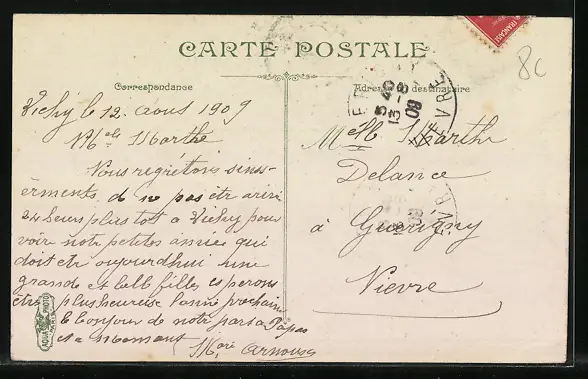 CARTE POSTALE
Correspondance
Vichy le 12 Aous 1909
Melle Marthe
Vous regretons sinss-
erments de ne pas etr arivé
24 heurs plus tot a Vichy pour
voir notr petites amies qui
doit etr aujourdhui une
grande et bell filles esperons
etre plus heureuse l'anné prochain
le bonjour de notr part a Papas
et a Mamant
Marie Arnous
AQUA PHOTO
Adresse du destinataire
Melle Marthe
Delance
à Guérigny
Nièvre
8c